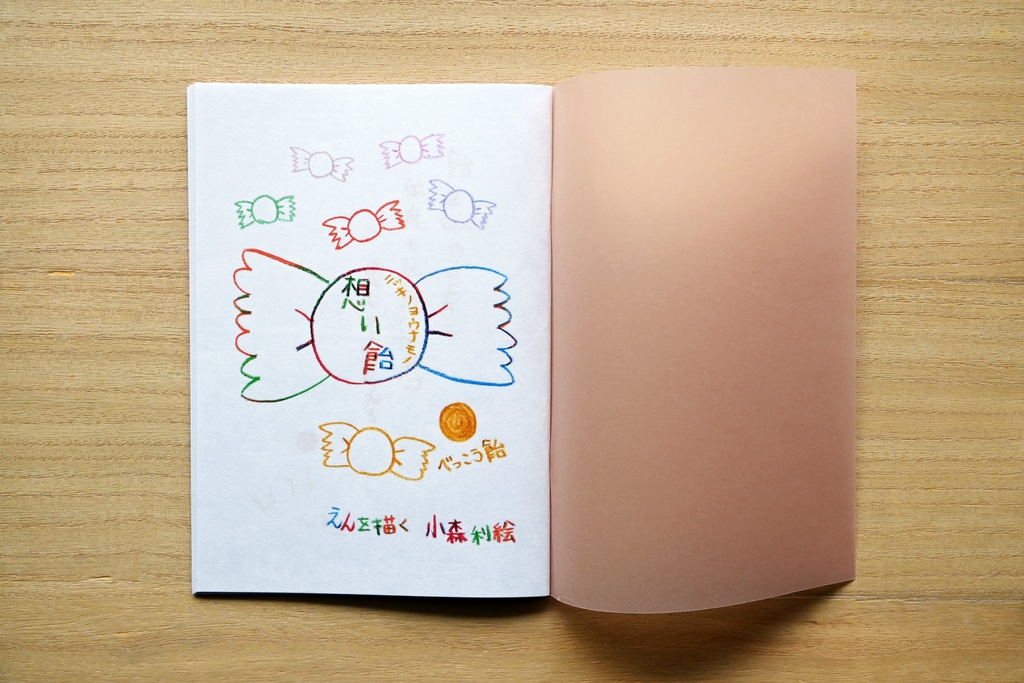 想い飴
ニッキノヨウナモノ
べっこう飴
えんを描く 小森利絵